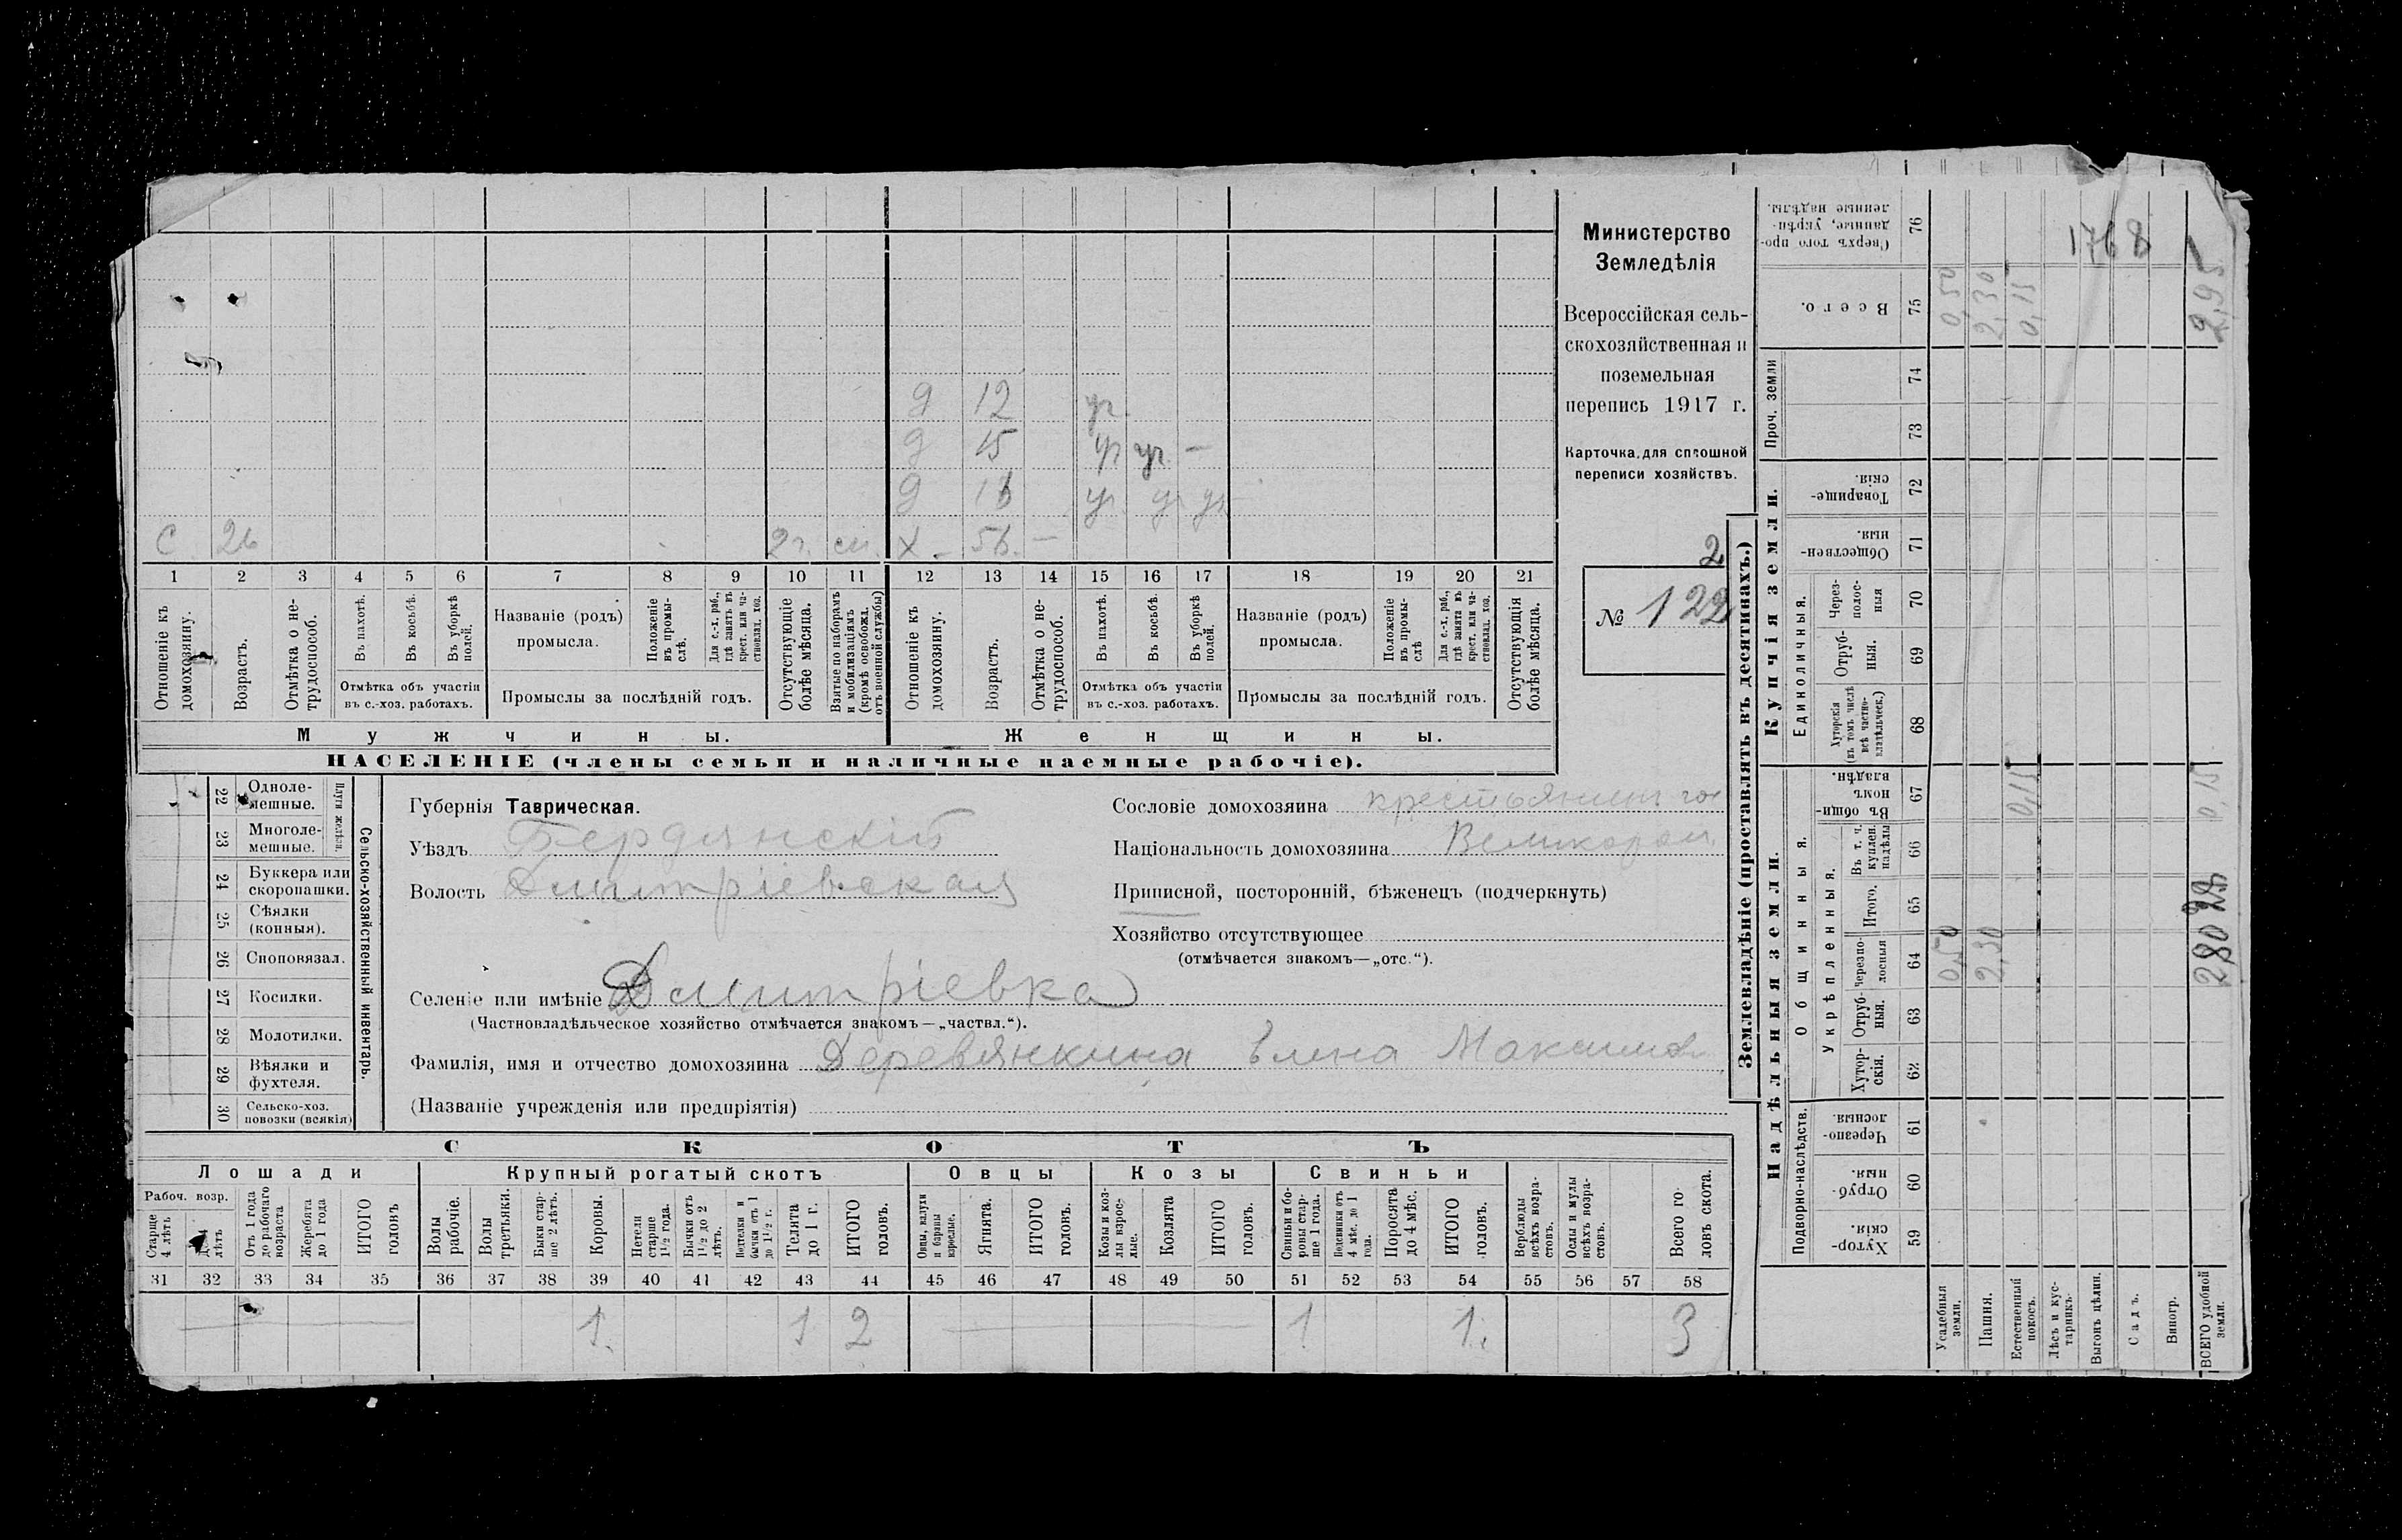 Министерство
Земледѣлія
Всероссійская сель-
скохозяйственная и
поземельная
перепись 1917 г.
Карточка для сплошной
переписи хозяйствъ.
2
№ 122
д 12 уч.
д 15 уч уч —
д 16 уч уч уч
С 26 2 г. Х 56 —
1 2 3 4 5 6 7 8 9 10 11 12 13 14 15 16 17 18 19 20 21
Отношеніе къ домохозяину.
Возрастъ.
Отмѣтка о не-трудоспособ.
Въ пахотѣ.
Въ косьбѣ.
Въ уборкѣ полей.
Отмѣтка объ участіи въ с.-хоз. работахъ.
Названіе (родъ) промысла.
Положеніе въ промы-слѣ.
Для с.-х. раб., гдѣ занятъ въ крест. или ча-стновлад. хоз.
Промыслы за послѣдній годъ.
Отсутствующіе болѣе мѣсяца.
Взятые по наборамъ и мобилизаціямъ (кромѣ освобожд. отъ военной службы)
Отношеніе къ домохозяину.
Возрастъ.
Отмѣтка о не-трудоспособ.
Въ пахотѣ.
Въ косьбѣ.
Въ уборкѣ полей.
Отмѣтка объ участіи въ с.-хоз. работахъ.
Названіе (родъ) промысла.
Положеніе въ промы-слѣ
Для с.-х. раб., гдѣ занята въ крест. или ча-стновлад. хоз.
Промыслы за послѣдній годъ.
Отсутствующія болѣе мѣсяца.
Мужчины. Женщины.
НАСЕЛЕНІЕ (члены семьи и наличные наемные рабочіе).
Сельско-хозяйственный инвентарь.
Плуги желѣзн.
22 Одноле-мешные.
23 Многоле-мешные.
24 Буккера или скоропашки.
25 Сѣялки (конныя).
26 Сноповязал.
27 Косилки.
28 Молотилки.
29 Вѣялки и фухтеля.
30 Сельско-хоз. повозки (всякія)
Губернія Таврическая.
Уѣздъ Бердянскій
Волость Дмитріевская
Сословіе домохозяина крестьянин
Національность домохозяина Великорос.
Приписной, посторонній, бѣженецъ (подчеркнуть)
Хозяйство отсутствующее
(отмѣчается знакомъ—„отс.“).
Селеніе или имѣніе Дмитріевка
(Частновладѣльческое хозяйство отмѣчается знакомъ—„частвл.“).
Фамилія, имя и отчество домохозяина Деревянкина Елена Максимов
(Названіе учрежденія или предпріятія)
СКОТЪ
Лошади Крупный рогатый скотъ Овцы Козы Свиньи
Рабоч. возр.
Старше 4 лѣтъ
До 4 лѣтъ
Отъ 1 года до рабочаго возраста
Жеребята до 1 года
ИТОГО головъ
Волы рабочіе.
Волы третьяки.
Быки стар-ше 2 лѣтъ.
Коровы.
Нетели старше 1½ года.
Бычки отъ 1½ до 2 лѣтъ.
Нетелки и бычки отъ 1 до 1½ г.
Телята до 1 г.
ИТОГО головъ.
Овцы, валухи и бараны взрослые.
Ягнята.
ИТОГО головъ.
Козы и коз-лы взрос-лые.
Козлята
ИТОГО головъ.
Свиньи и бо-ровы стар-ше 1 года.
Подсвинки отъ 4 мѣс. до 1 года.
Поросята до 4 мѣс.
ИТОГО головъ.
Верблюды всѣхъ возра-стовъ.
Ослы и мулы всѣхъ возра-стовъ.
Всего го-ловъ скота.
31 32 33 34 35 36 37 38 39 40 41 42 43 44 45 46 47 48 49 50 51 52 53 54 55 56 57 58
— 1. 1 2 — 1 1. 3
Землевладѣніе (проставлять въ десятинахъ.)
Надѣльныя земли. Купчія земли.
Подворно-наслѣдств.
Общинныя.
Укрѣпленныя.
Единоличныя.
Проч. земли
59 Хутор-скія.
60 Отруб-ныя.
61 Черезпо-лосныя.
62 Хутор-скія.
63 Отруб-ныя.
64 Черезпо-лосныя
65 Итого.
66 Въ т. ч. куплен. надѣлы
67 Въ общин-номъ владѣн.
68 Хуторскія (въ томъ числѣ всѣ частно-владѣльческ.)
69 Отруб-ныя.
70 Через-полос-ныя
71 Обществен-ныя.
72 Товарище-скія.
73
74
75 Всего.
76 Сверхъ того про-данные, укрѣп-ленные надѣлы.
Усадебныя земли. 0,50 0,50
Пашня. 2,30 2,30
Естественный покосъ. 0,15 0,15
Лѣсъ и кус-тарникъ.
Выгонъ цѣлин.
Садъ.
Виногр.
ВСЕГО удобной земли. 2,80 0,15 2,95
1768